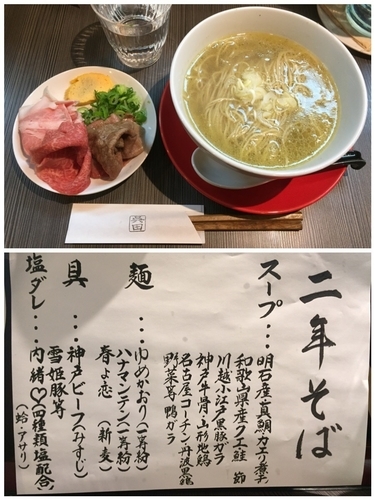 二年そば
スープ…明石産真鯛カエリ煮干
和歌山県産クエ鮭節
川越小江戸黒豚ガラ
神戸牛骨・山形地鶏
名古屋コーチン丹波黒鶏
野菜等 鴨ガラ
麺…ゆめかおり(一等粉)
ハナマンテン(一等粉)
春よ恋(新麦)
具…神戸ビーフみすじ
雪姫豚等
塩ダレ…内緒♡四種類塩配合
(蛤・アサリ)